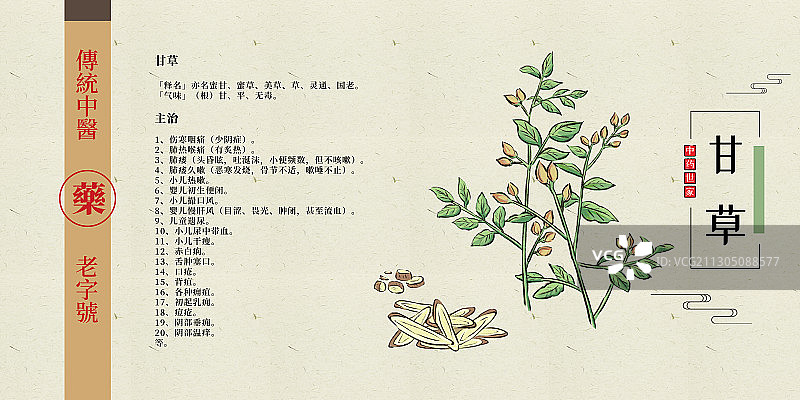 傳統中醫
藥
老字號
甘草
「释名」亦名蜜甘、蜜草、美草、草、灵通、国老。
「气味」（根）甘、平、无毒。
主治
1、伤寒咽痛（少阴症）。
2、肺热喉痛（有炙热）。
3、肺痿（头昏眩，吐涎沫，小便频数，但不咳嗽）。
4、肺痿久嗽（恶寒发烧，骨节不适，嗽唾不止）。
5、小儿热嗽。
6、婴儿初生便闭。
7、小儿撮口风。
8、婴儿慢肝风（目涩、畏光、肿闭，甚至流血）。
9、儿童遗尿。
10、小儿尿中带血。
11、小儿干瘦。
12、赤白痢。
13、舌肿塞口。
14、口疮。
15、背疽。
16、各种痈疽。
17、初起乳痈。
18、痘疮。
19、阴部垂痈。
20、阴部温痒。
等。
甘草
中药世家
VCG
VCG.COM
ID:VCG211305088577